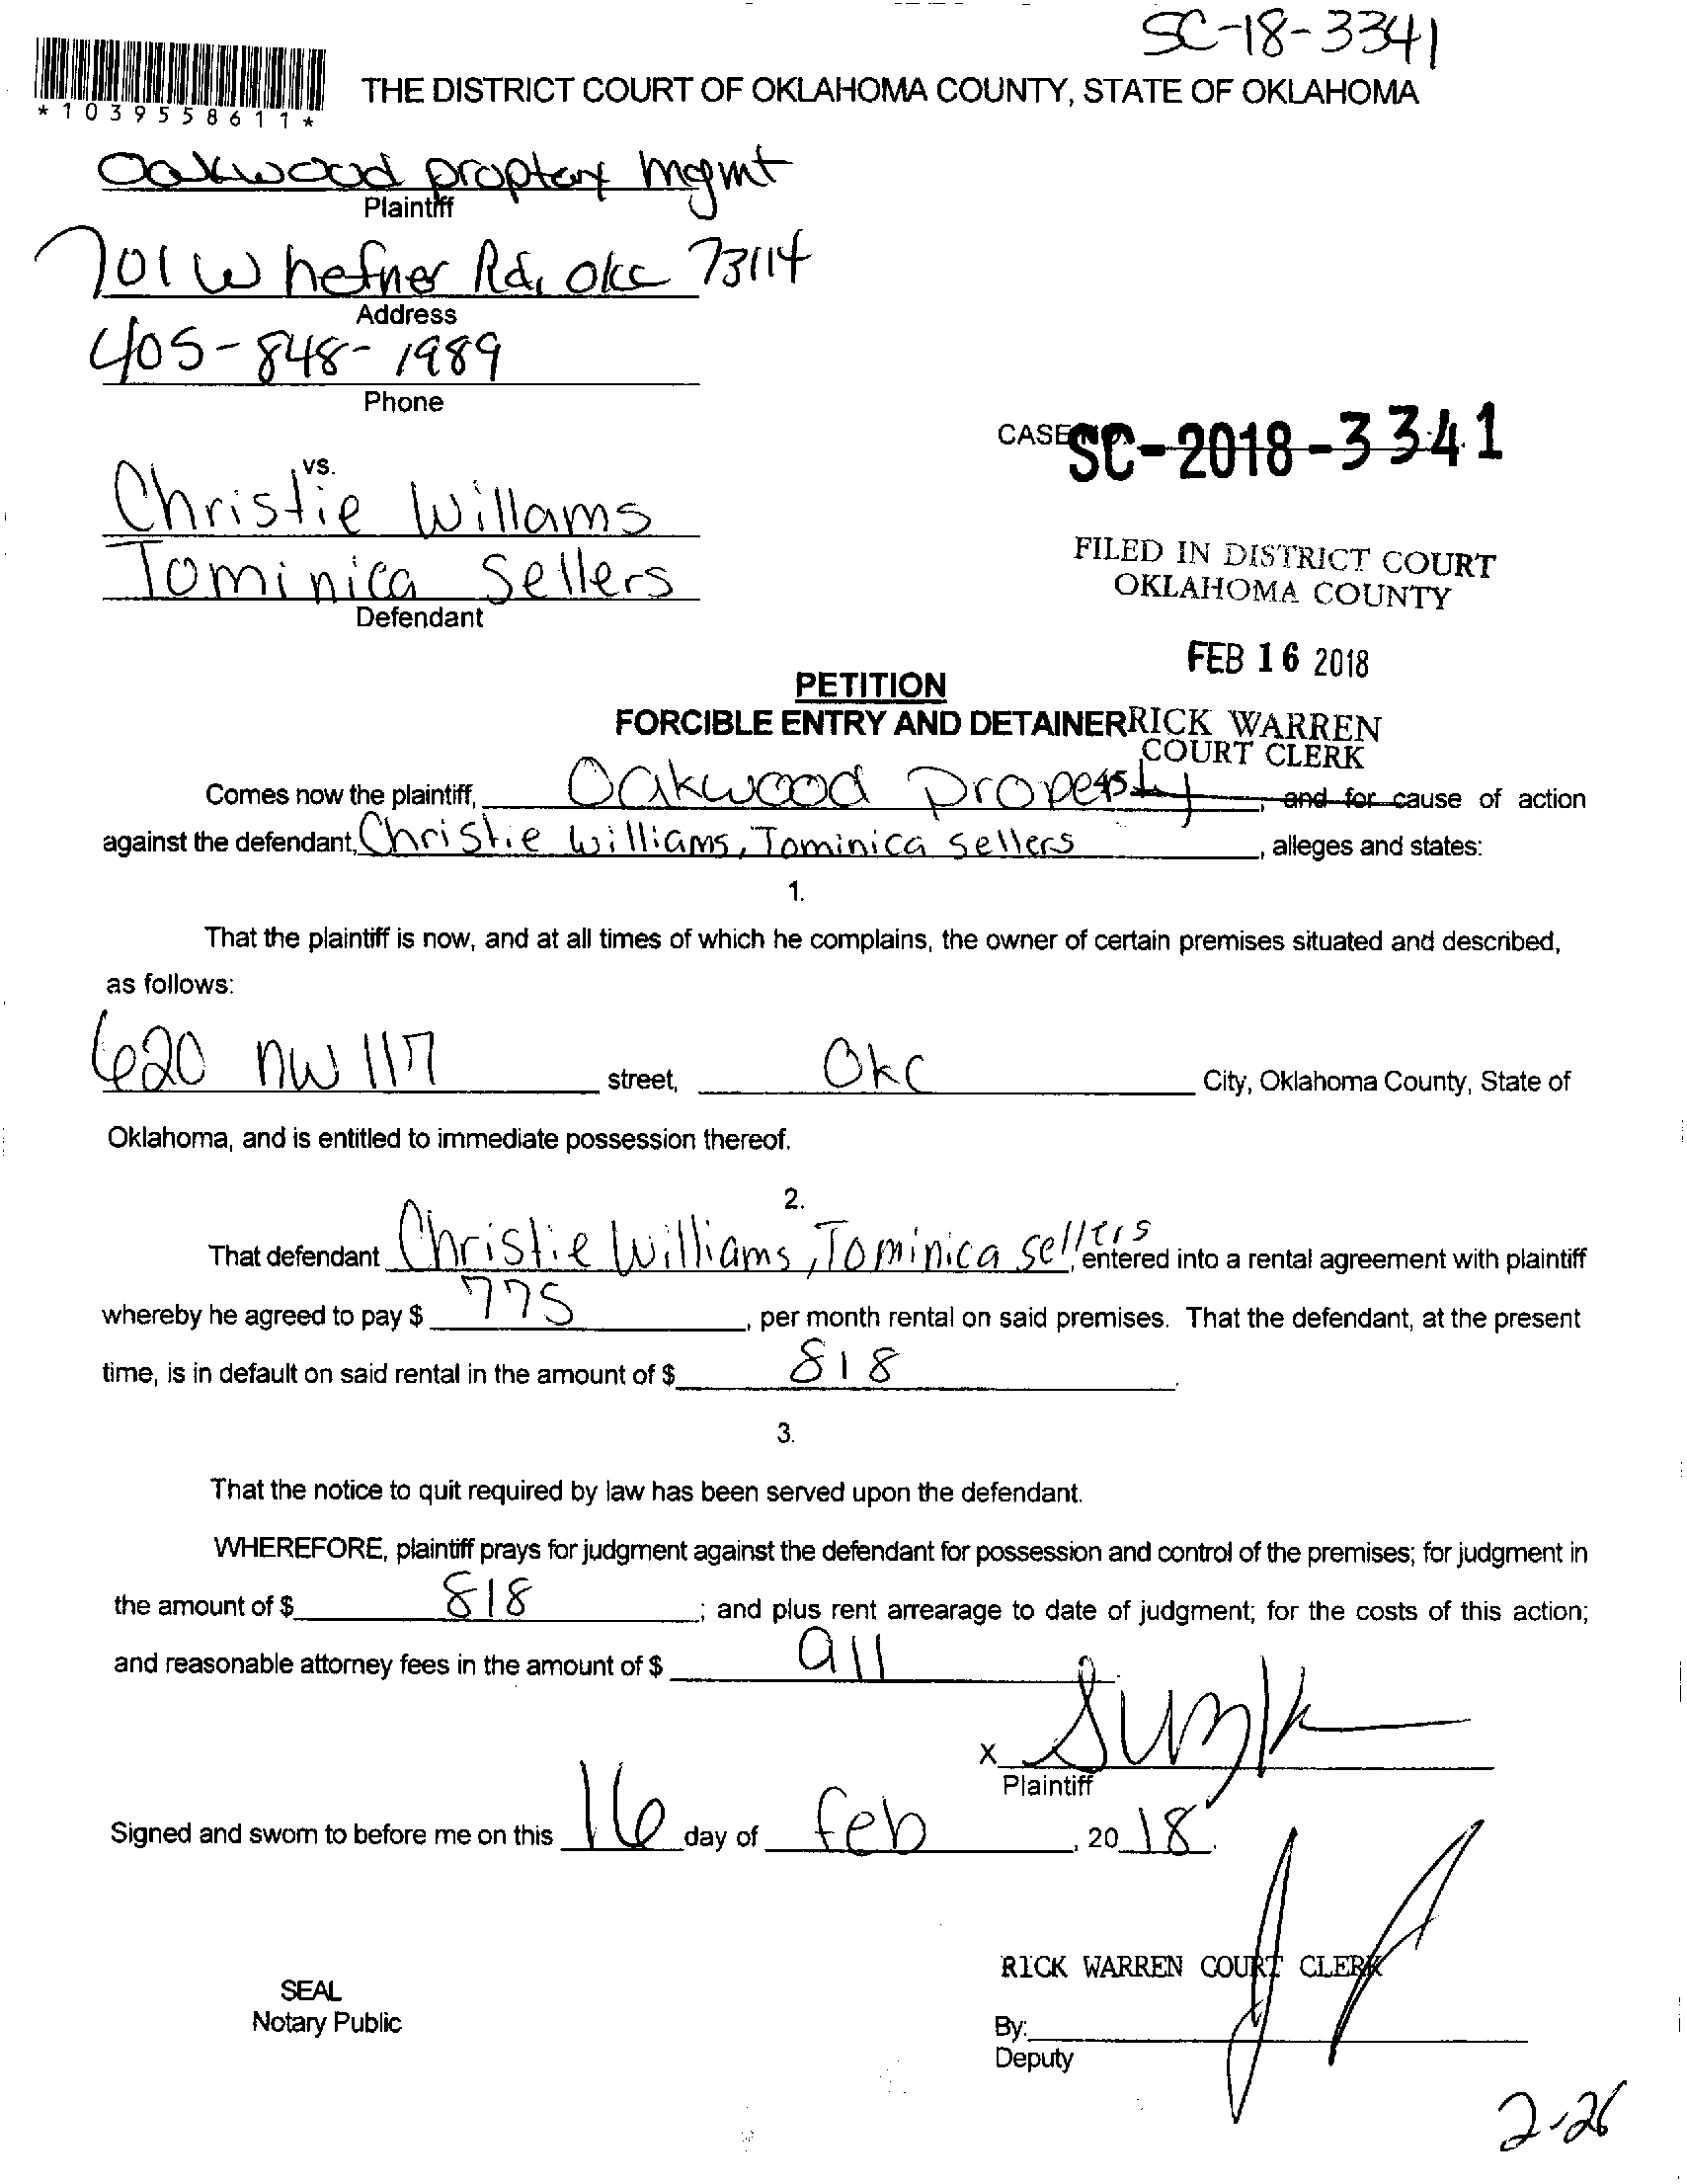 SC-18-3341
*1039558611*
THE DISTRICT COURT OF OKLAHOMA COUNTY, STATE OF OKLAHOMA
Oakwood proptery mgmt
Plaintiff
701 W hefner Rd, okc 73114
Address
405-848-1989
Phone
CASE SC-2018-3341
vs.
Christie Willams
Tominica Sellers
Defendant
FILED IN DISTRICT COURT
OKLAHOMA COUNTY
FEB 16 2018
PETITION
FORCIBLE ENTRY AND DETAINER RICK WARREN
COURT CLERK
Comes now the plaintiff, Oakwood Property, and for cause of action
45
against the defendant, Christie Williams, Tominica Sellers, alleges and states:
1.
That the plaintiff is now, and at all times of which he complains, the owner of certain premises situated and described,
as follows:
620 NW 117 street, OKC City, Oklahoma County, State of
Oklahoma, and is entitled to immediate possession thereof.
2.
That defendant Christie Williams, Tominica Sellers, entered into a rental agreement with plaintiff
whereby he agreed to pay $ 775, per month rental on said premises. That the defendant, at the present
time, is in default on said rental in the amount of $ 818.
3.
That the notice to quit required by law has been served upon the defendant.
WHEREFORE, plaintiff prays for judgment against the defendant for possession and control of the premises; for judgment in
the amount of $ 818; and plus rent arrearage to date of judgment; for the costs of this action;
and reasonable attorney fees in the amount of $ all
X
Plaintiff
Signed and sworn to before me on this 16 day of feb, 20 18.
RICK WARREN COURT CLERK
SEAL
Notary Public
By:
Deputy
2-26